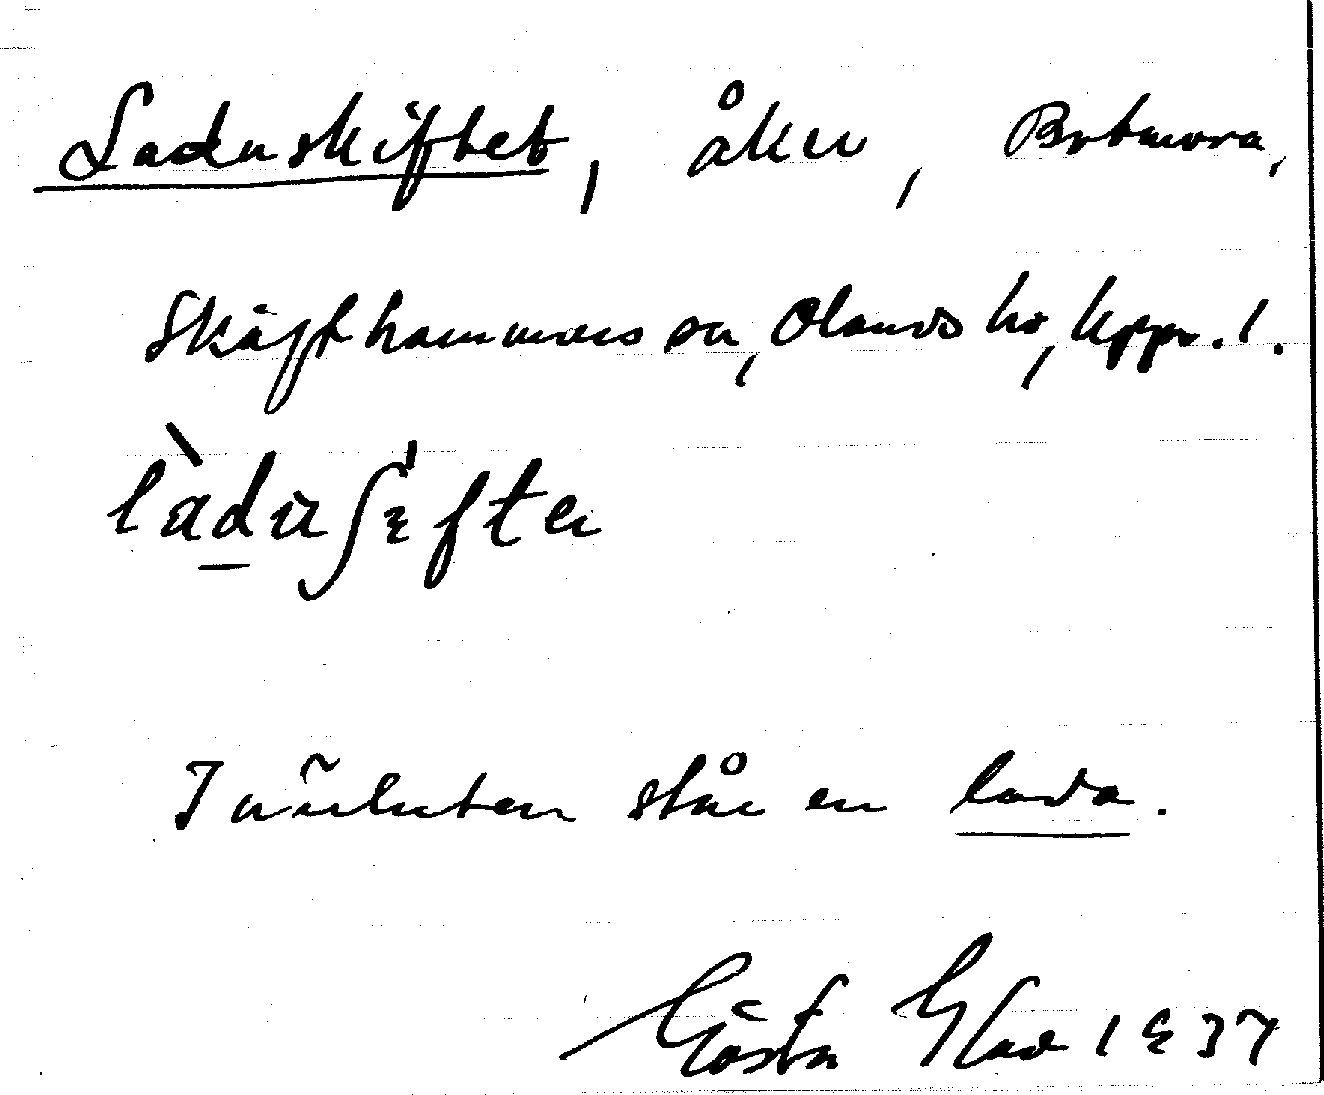 Laduskiftet, åker, Botmora,
Skäfthammars sn, Olands hd, Upps. l.
làdaʃɛfte
I närheten står en lada.
Gösta Glad 1937